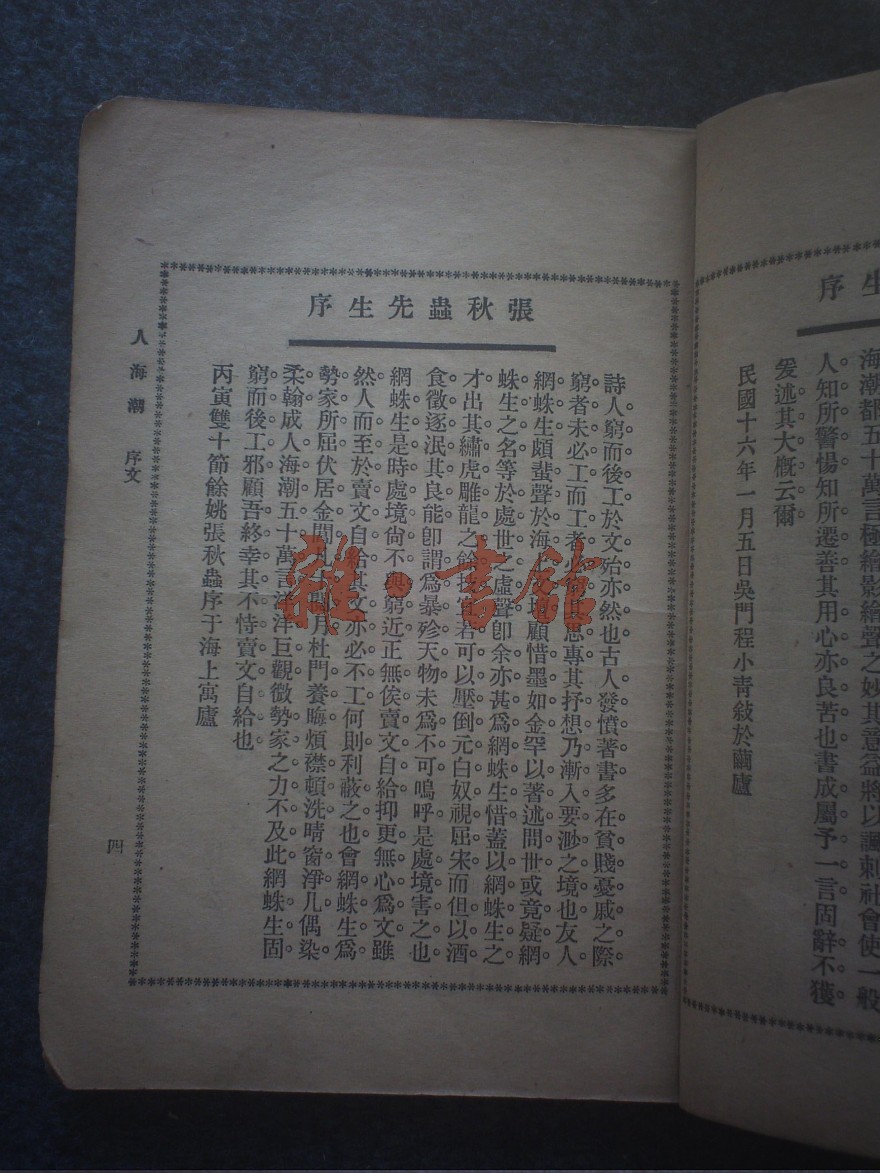 生序
海潮都五十萬言極繪影繪聲之妙其意益將以諷刺社會使一般
人知所警惕知所遷善其用心亦良苦也書成屬予一言固辭不獲
爰述其大概云爾
民國十六年一月五日吳門程小青敍於繭廬
張秋蟲先生序
詩人窮而後工於文殆亦然也古人發憤著書多在貧賤憂戚之際
窮者未必工而工者必窮其思專其抒想乃漸入要渺之境也友人
網蛛生頗蜚聲於海上文壇顧惜墨如金罕以著述問世或竟疑網
蛛生之名等於處世之虛聲卽余亦甚爲網蛛生惜蓋以網蛛生之
才出其繡虎雕龍之餘技直若可以壓倒元白奴視屈宋而但以酒
食徵逐泯其良能卽謂爲暴殄天物未爲不可嗚呼是處境害之也
網蛛生是時處境尙不與窮近正無俟賣文自給抑更無心爲文雖
然人而至於賣文自給其文亦必不工何則利蔽之也會網蛛生爲
勢家所屈伏居金閶凡 閱月杜門養晦煩襟頓洗晴窗淨几偶染
柔翰成人海潮五十萬言洋洋巨觀微勢家之力不及此網蛛生固
窮而後工邪顧吾終幸其不恃賣文自給也
丙寅雙十節餘姚張秋蟲序于海上寓廬
人海潮 序文
四
雜·書館